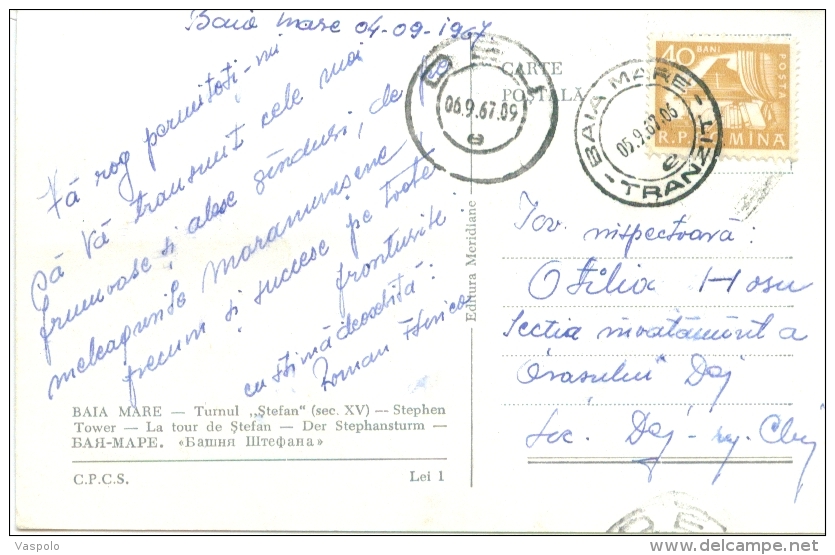 Baia mare 04-09-1967
Vă rog permiteți-mi
să Vă transmit cele mai
frumoase și alese gînduri, de pe
meleagurile maramureșene,
precum și succese pe toate
fronturile
cu stimă deosebită:
Roman Florica
BAIA MARE — Turnul „Ștefan" (sec. XV) — Stephen
Tower — La tour de Ștefan — Der Stephansturm —
БАЯ-МАРЕ. «Башня Штефана»
C.P.C.S.
Lei 1
Editura Meridiane
CARTE
POȘTALĂ
06.9.67.09
e
BAIA MARE
05.9.67.06
e
- TRANZIT -
40 BANI
POSTA
R.P. ROMINA
Tov. inspectoară:
Otilia Hosu
Sectia învatămînt a
Orasului Dej
Loc. Dej - rg. Cluj
© Vaspolo
www.delcampe.net